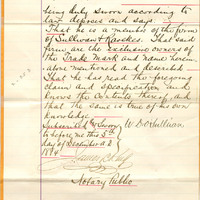 being duly sworn according to
law deposes and says
That he is a member of the firm
of Sullivan & Hawkes. That said
firm are the exclusive owners of
the Trade Mark and name herein-
above mentioned and described
That he has read the foregoing
claim and specification and
knows the contents thereof, and
that the same is true of his own
knowledge
Subscribed & Sworn
to before me this
day of A.D.
W. D. Sullivan
Notary Public